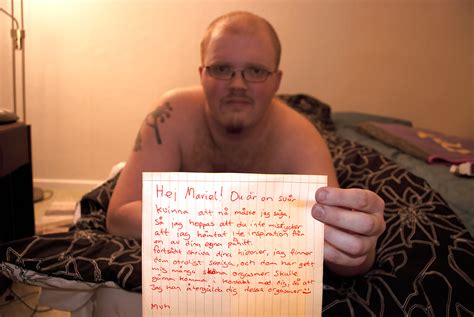 Hej Maria! Du är en svår
kvinna att nå måste jag säga,
så jag hoppas att du inte misstycker
att jag hämtat lite inspiration från
en av dina egna påhitt.
Fortsätt skriva dina historier, jag finner
dom otroligt sensiga, och dom har gett
mig många sköna orgasmer. Skulle
gärna komma i kontakt med dig, så att
jag kan återgälda dig dessa orgasmer
Mvh